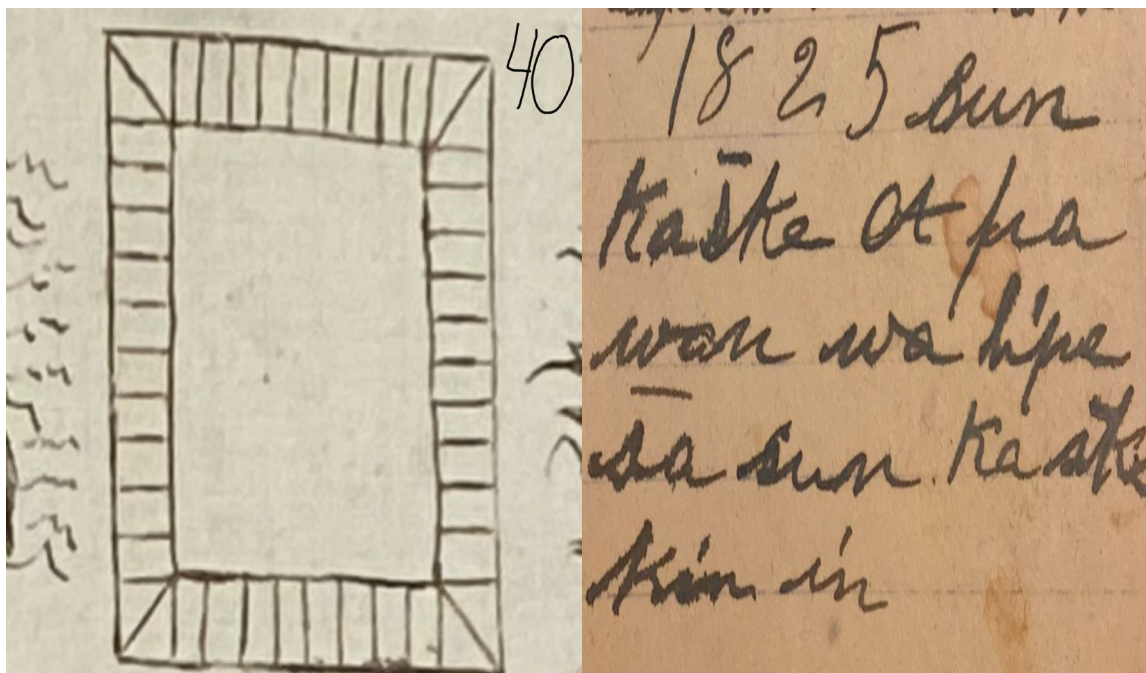 40
1825 sun
Kaške ot pa
wan wa hpe
s̄a sun Kaške
kin in